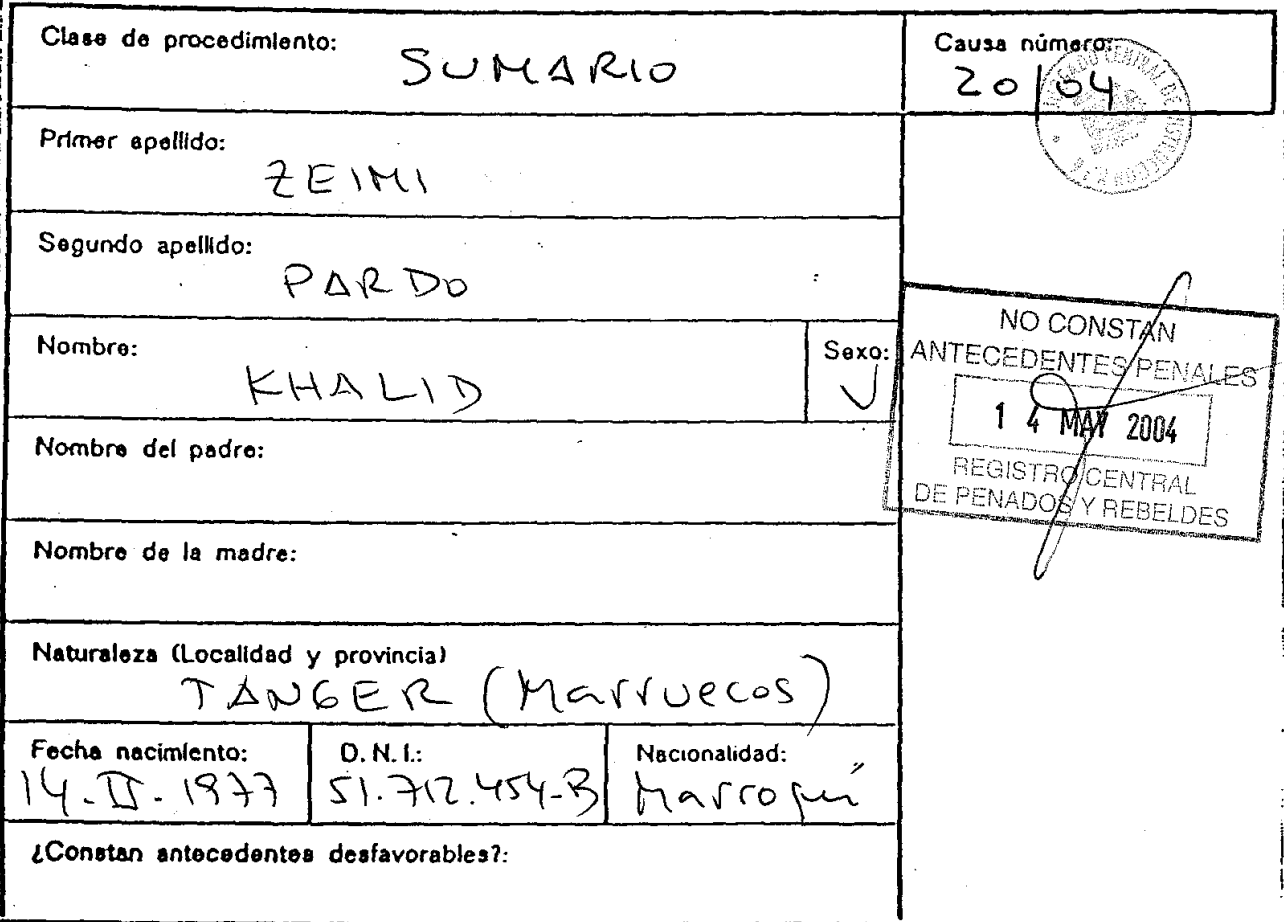 Clase de procedimiento:
SUMARIO
Causa número:
20/04
JUZGADO CENTRAL DE INSTRUCCION N.º 6
Primer apellido:
ZEIMI
Segundo apellido:
PARDO
Nombre:
KHALID
Sexo:
V
NO CONSTAN
ANTECEDENTES PENALES
14 MAY 2004
REGISTRO CENTRAL
DE PENADOS Y REBELDES
Nombre del padre:
Nombre de la madre:
Naturaleza (Localidad y provincia)
TANGER (Marruecos)
Fecha nacimiento:
14-II-1977
D.N.I.:
51.712.454-B
Nacionalidad:
Marroquí
¿Constan antecedentes desfavorables?: